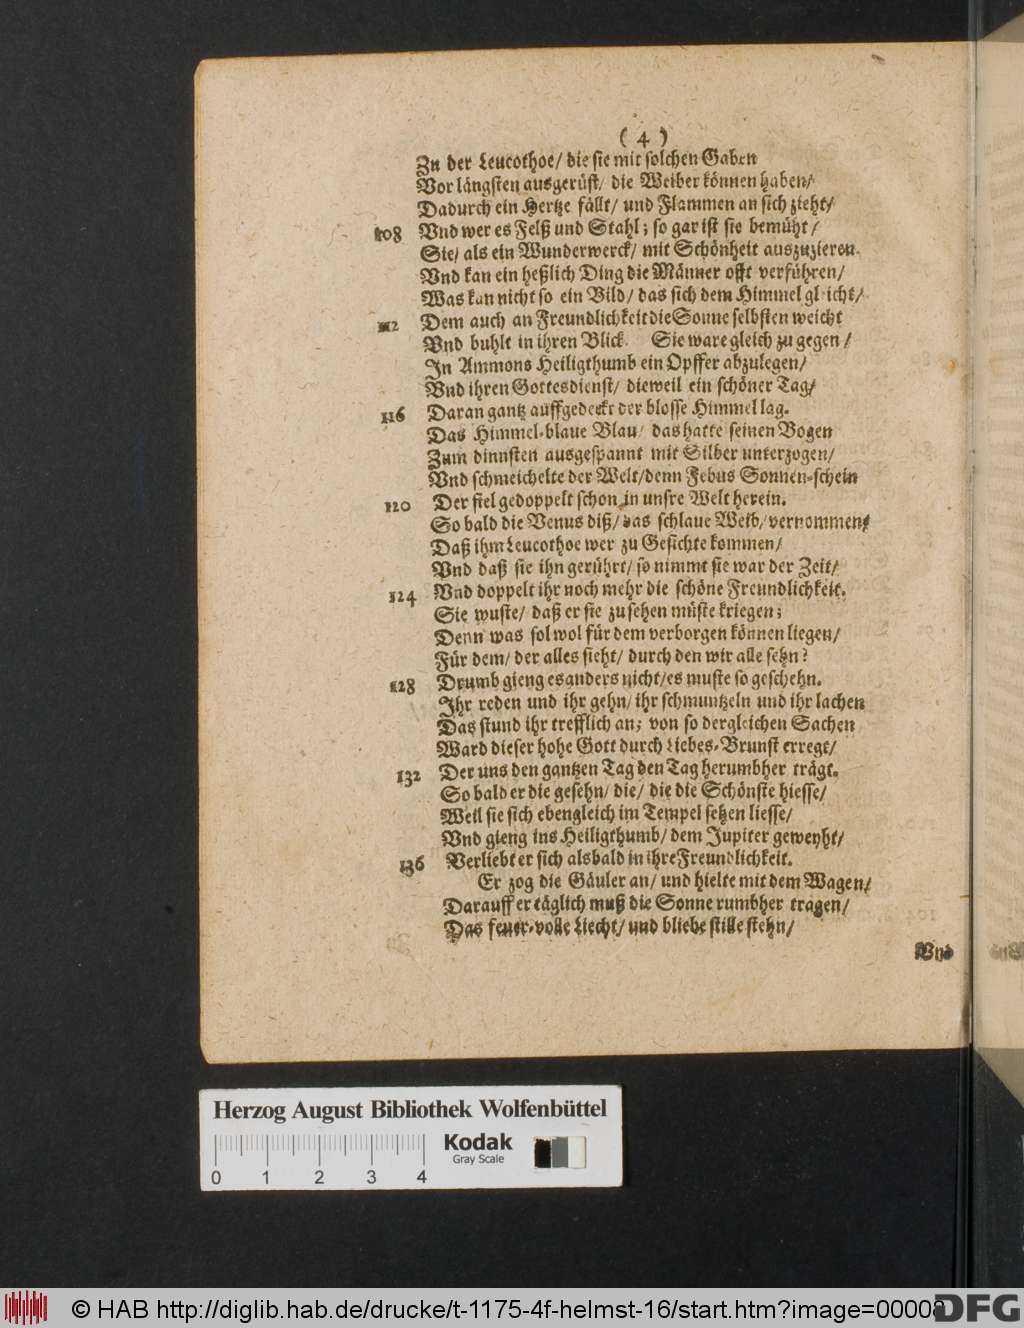 ( 4 )
Zu der Leucothoe/ die sie mit solchen Gaben
Vor längsten ausgerüst/ die Weiber können haben/
Dadurch ein Hertze fällt/ und Flammen an sich zieht/
108 Vnd wer es Felß und Stahl; so gar ist sie bemüht/
Sie/ als ein Wunderwerck/ mit Schönheit auszuzieren.
Vnd kan ein heßlich Ding die Männer offt verführen/
Was kan nicht so ein Bild/ das sich dem Himmel gleicht/
112 Dem auch an Freundlichkeit die Sonne selbsten weicht
Vnd buhlt in ihren Blick. Sie ware gleich zu gegen/
In Ammons Heiligthumb ein Opffer abzulegen/
Vnd ihren Gottesdienst/ dieweil ein schöner Tag/
116 Daran gantz auffgedeckt der blosse Himmel lag.
Das Himmel-blaue Blau/ das hatte seinen Bogen
Zum dinnsten ausgespannt mit Silber unterzogen/
Vnd schmeichelte der Welt/ denn Febus Sonnen-schein
120 Der fiel gedoppelt schon in unsre Welt herein.
So bald die Venus diß/ das schlaue Weib/ vernommen/
Daß ihm Leucothoe wer zu Gesichte kommen/
Vnd daß sie ihn gerührt/ so nimmt sie war der Zeit/
124 Vnd doppelt ihr noch mehr die schöne Freundlichkeit.
Sie wuste/ daß er sie zu sehen müste kriegen;
Denn was sol wol für dem verborgen können liegen/
Für dem/ der alles sieht/ durch den wir alle sehn?
128 Drumb gieng es anders nicht/ es muste so geschehn.
Ihr reden und ihr gehn/ ihr schmuntzeln und ihr lachen
Das stund ihr trefflich an; von so dergleichen Sachen
Ward dieser hohe Gott durch Liebes-Brunst erregt/
132 Der uns den gantzen Tag den Tag herumbher trägt.
So bald er die gesehn/ die/ die die Schönste hiesse/
Weil sie sich ebengleich im Tempel sehen liesse/
Vnd gieng ins Heiligthumb/ dem Jupiter geweyht/
136 Verliebt er sich alsbald in ihre Freundlichkeit.
Er zog die Gäuler an/ und hielte mit dem Wagen/
Darauff er täglich muß die Sonne rumbher tragen/
Das feuer-volle Liecht/ und bliebe stille stehn/
Vnd
Herzog August Bibliothek Wolfenbüttel
Kodak
Gray Scale
0 1 2 3 4
© HAB http://diglib.hab.de/drucke/t-1175-4f-helmst-16/start.htm?image=00008
DFG